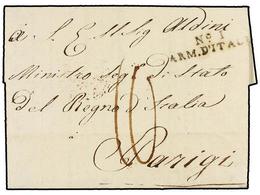 a S. E. Il Sig Aldini
Nº 1
ARM. D'ITAL
Ministro Seg di Stato
Del Regno d'Italia
10
Parigi